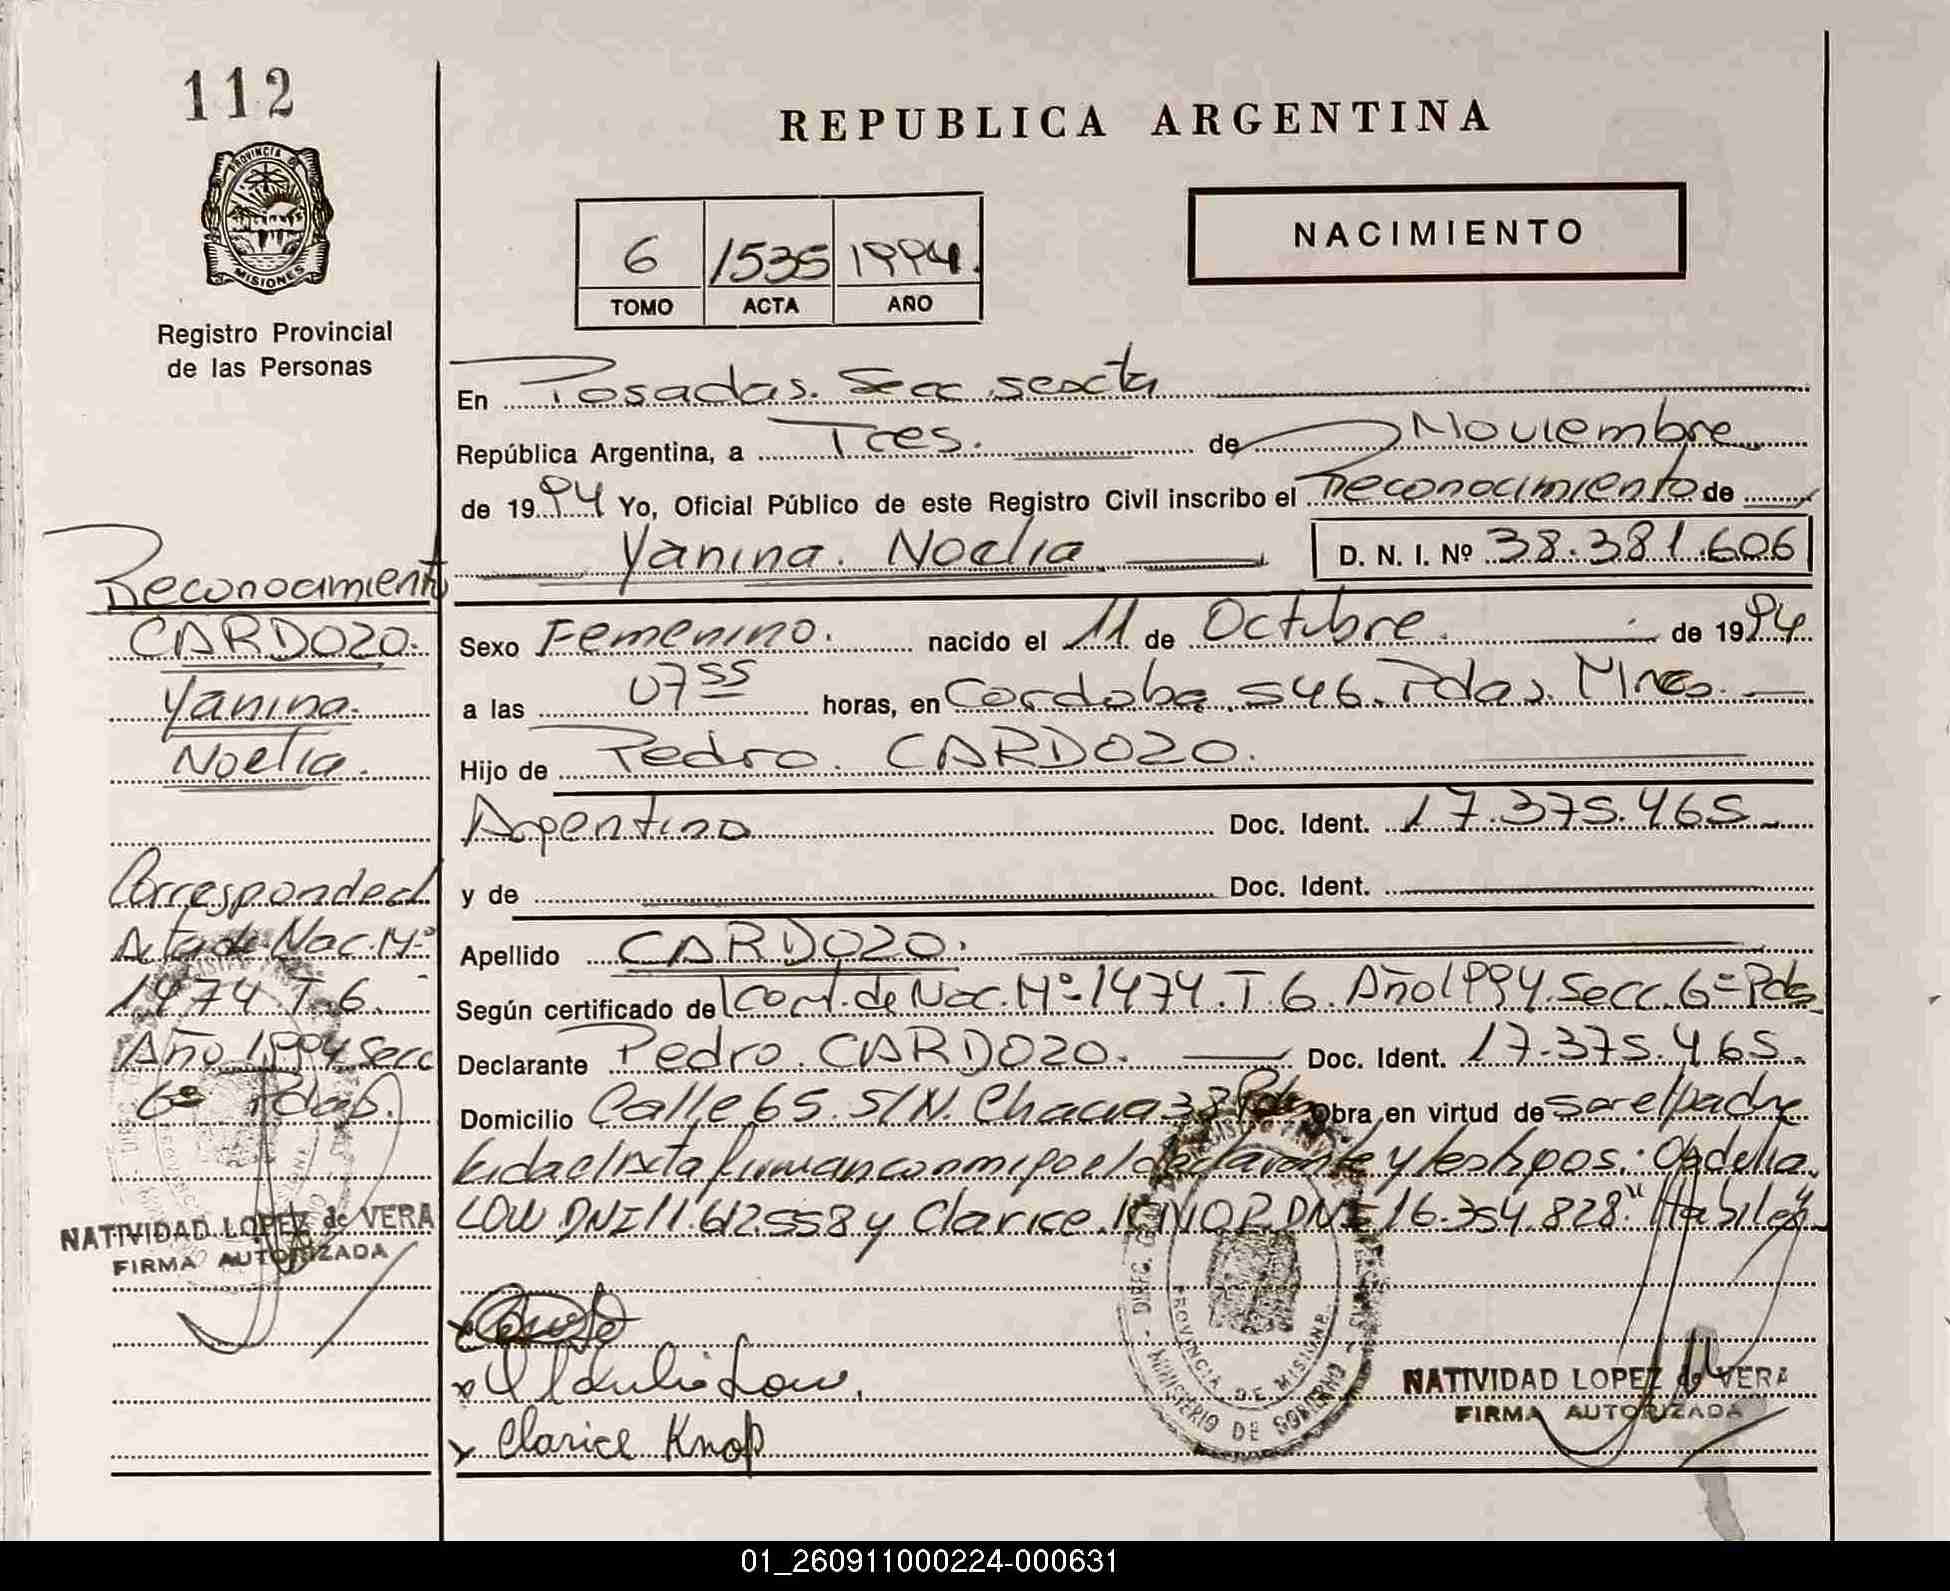 112
REPUBLICA ARGENTINA
PROVINCIA DE
MISIONES
Registro Provincial
de las Personas
6 1535 1994.
TOMO ACTA AÑO
NACIMIENTO
En Posadas. Secc. sexta
República Argentina, a Tres. de Noviembre
de 1994 Yo, Oficial Público de este Registro Civil inscribo el Reconocimiento de
Yanina. Noelia D. N. I. Nº 38.381.606
Sexo Femenino. nacido el 11 de Octubre. de 1994
a las 07 55 horas, en Cordoba 546. Pdas. Mnes.
Hijo de Pedro. CARDOZO.
Argentino Doc. Ident. 17.375.465
y de Doc. Ident.
Apellido CARDOZO.
Según certificado de Nac. Nº 1474. T. 6. Año 1994. Secc. 6ª Pdas
Declarante Pedro. CARDOZO. Doc. Ident. 17.375.465.
Domicilio Calle 65. S/N. Chacra 38 Pdas Obra en virtud de ser el padre
Leida el Acta firman conmigo el declarante y testigos:
LOW DNI 11.612.558 y Clarice. KNOP. DNI 16.354.828. "Habiles"
Clarice Knop
NATIVIDAD LOPEZ de VERA
FIRMA AUTORIZADA
MINISTERIO DE GOBIERNO
PROVINCIA DE MISIONES
Reconocimiento
CARDOZO.
Yanina.
Noelia.
Corresponde al
Acta de Nac. Nº
1474. T. 6.
Año 1994 Secc
6ª Pdas.
NATIVIDAD LOPEZ de VERA
FIRMA AUTORIZADA
01_260911000224-000631